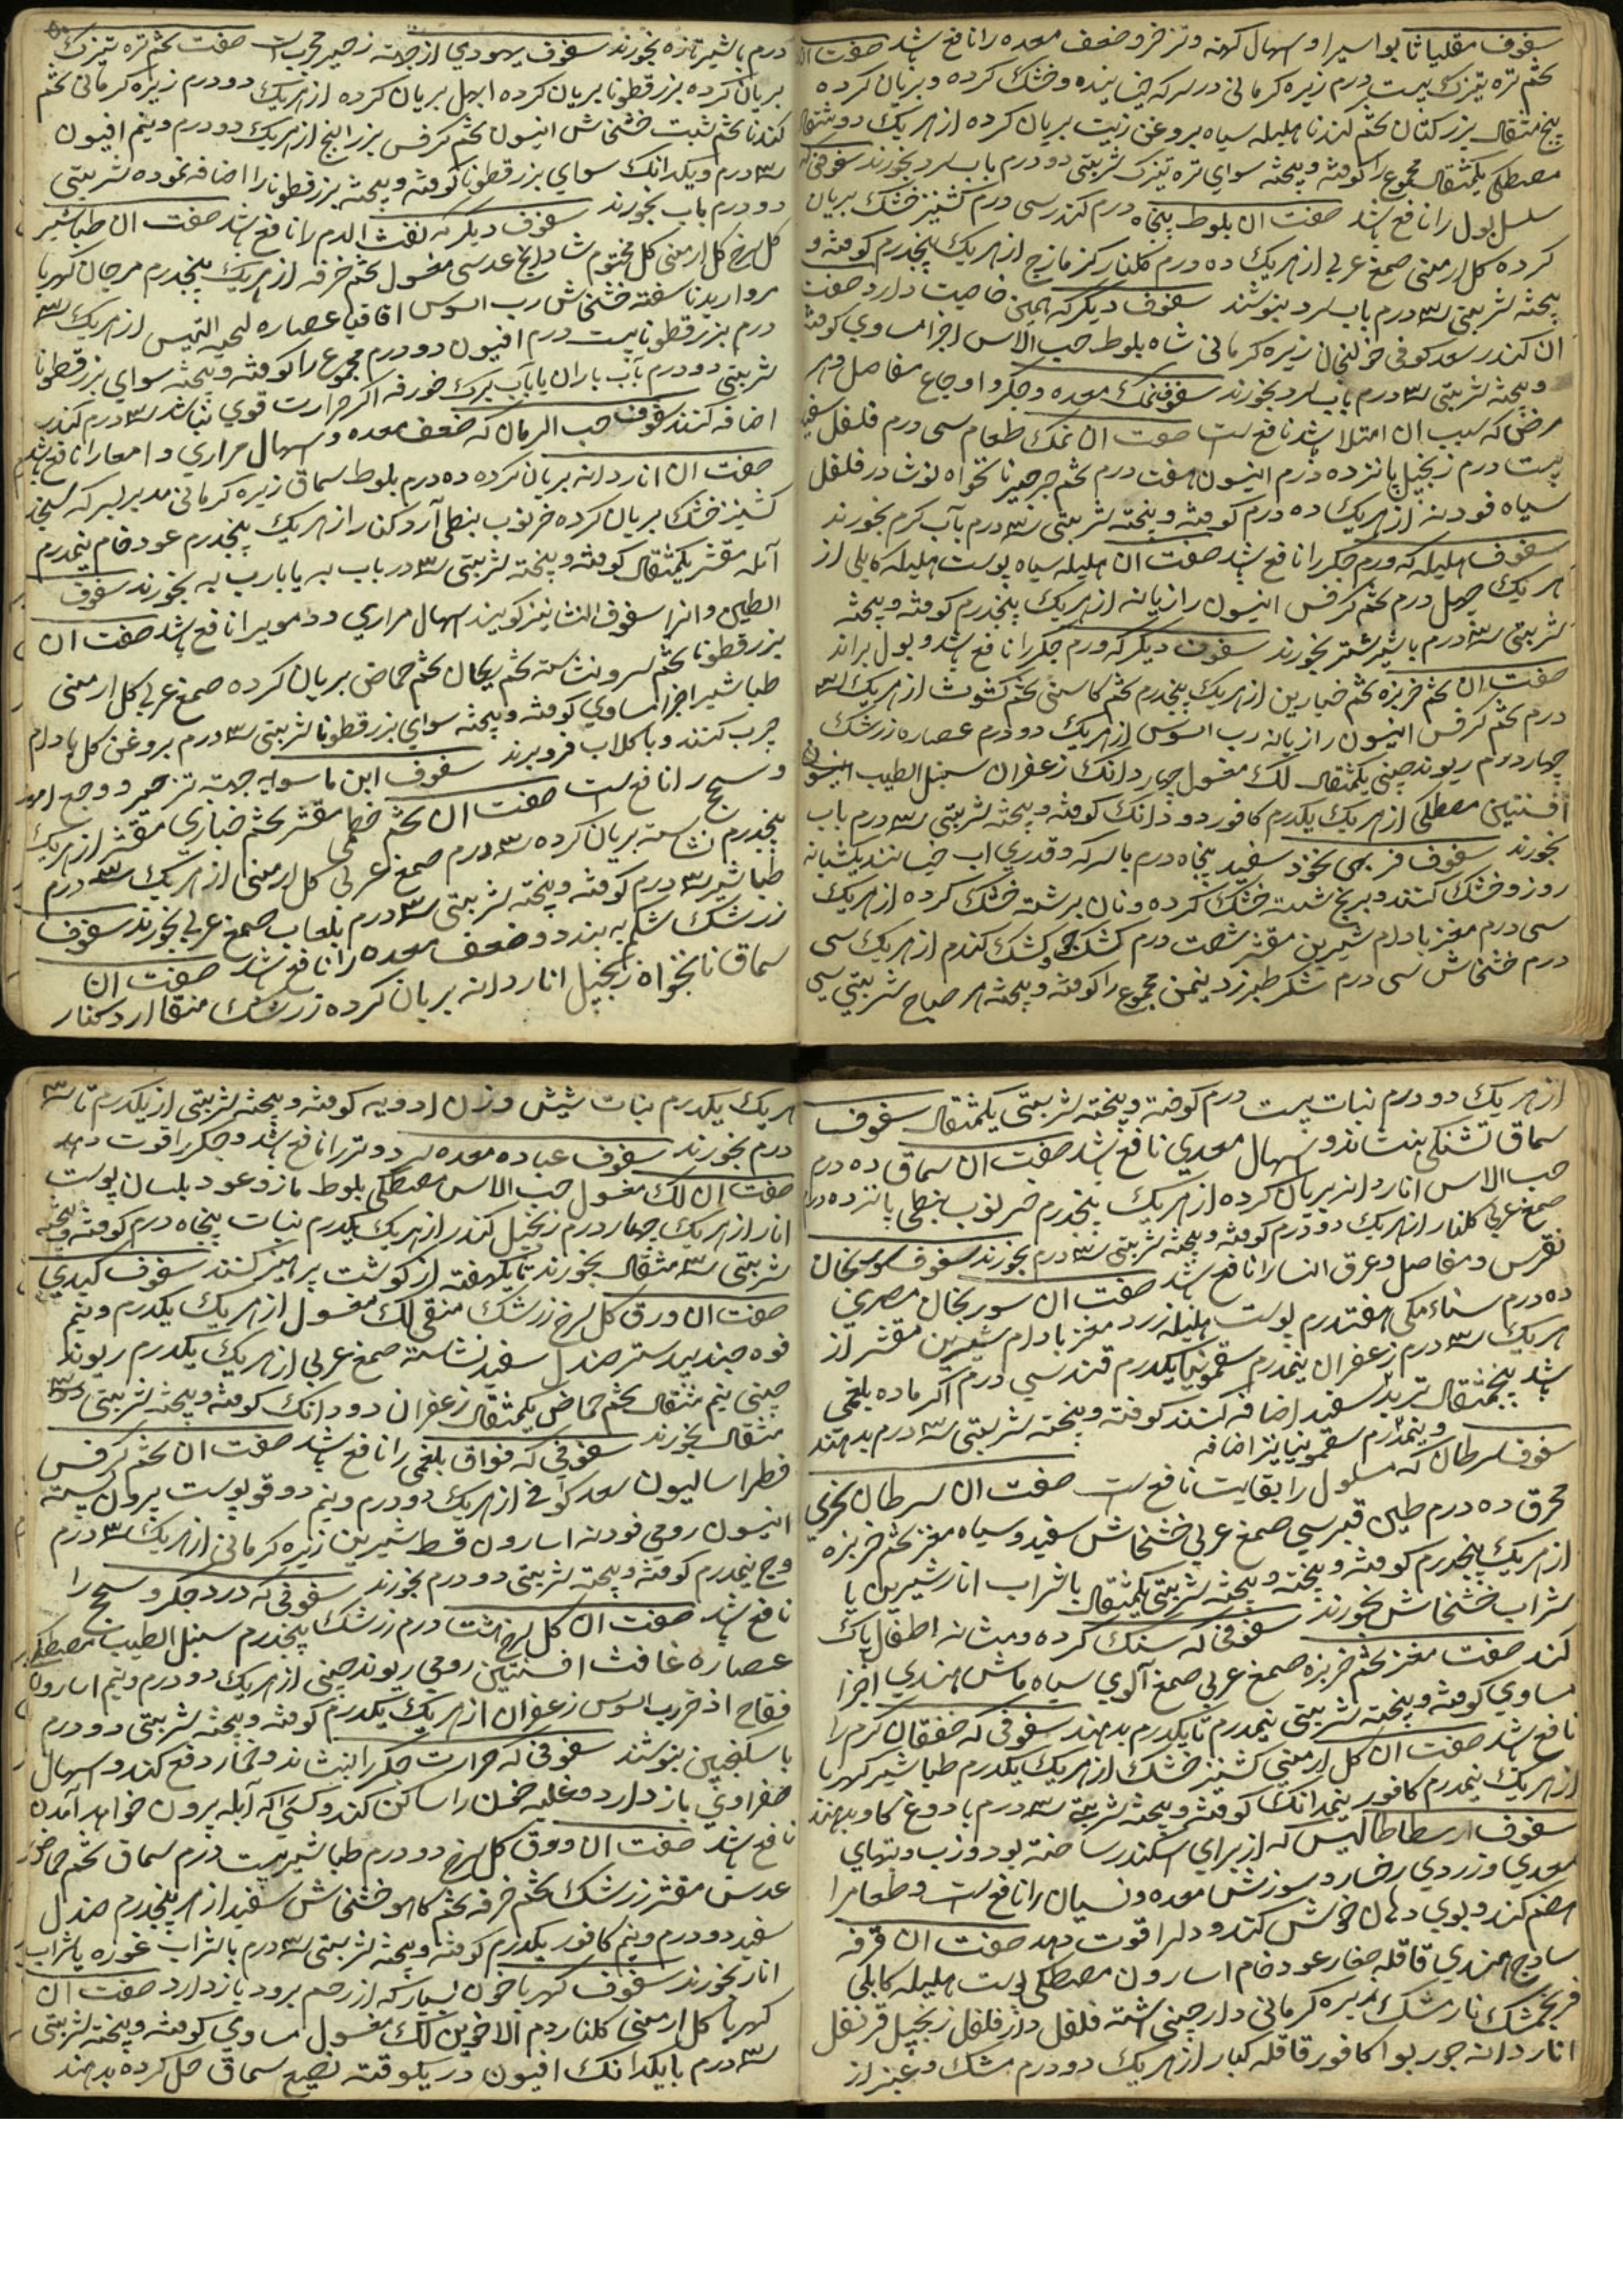 سفوف مقلیاثا بواسیر و اسهال کهنه و تزحر و ضعف معده را نافع باشد صفت ان
تخم تره تیزک بیست درم زیره کرمانی در سرکه خیسانیده و خشک کرده و بریان کرده
پنج مثقال بزر کتان تخم کندنا هلیله سیاه بروغن زیت بریان کرده از هریک دو مثقال
مصطکی یکمثقال مجموع را کوفته و بیخته سوای تره تیزک شربتی دو درم باب سرد بخورند سفوفی که
سلس بول را نافع باشد صفت ان بلوط پنجاه درم کندر سی درم کشنیز خشک بریان
کرده کل ارمنی صمغ عربی از هریک ده درم کلنار کزمازج از هریک پنجدرم کوفته و
بیخته شربتی ۳ درم باب سرد بنوشند سفوف دیکر که همین خاصیت دارد صفت
ان کندر سعد کوفی خولنجان زیره کرمانی شاه بلوط حب الاس اجزا مساوی کوفته
و بیخته شربتی ۳ درم باب سرد بخورند سفوف نمک معده و جکر و اوجاع مفاصل و هر
مرض که سبب ان امتلا باشد نافع است صفت ان نمک طعام سی درم فلفل سفید
بیست درم زنجبیل پانزده درم انیسون هفت درم تخم جرجیر نانخواه در فلفل
سیاه فودنه از هریک ده درم کوفته و بیخته شربتی ۳ درم بآب کرم بخورند
سفوف هلیله که ورم جکر را نافع باشد صفت ان هلیله سیاه پوست هلیله کابلی از
هریک چهل درم تخم کرفس انیسون رازیانه از هریک پنجدرم کوفته و بیخته
شربتی ۳ درم باشیر شتر بخورند سفوف دیکر که ورم جکر را نافع باشد و بول براند
صفت ان تخم خربزه تخم خیارین از هریک پنجدرم تخم کاسنی تخم کشوث از هریک ۳
درم تخم کرفس انیسون رازیانه رب السوس از هریک دو درم عصاره زرشک
چهار درم ریوند چینی یکمثقال لک مغسول چهار دانک زعفران سنبل الطیب
افسنتین مصطکی از هریک یکدرم کافور دو دانک کوفته و بیخته شربتی ۳ درم باب
بخورند سفوف فربهی نخود سفید پنجاه درم باسرکه و قدری اب خیسانند یکشبانه
روز و خشک کنند و برنج شسته خشک کرده و نان برشته خشک کرده از هریک
سی درم مغز بادام شیرین مقشر شصت درم کشک جو کشک کندم از هریک سی
درم خشخاش سی درم شکر طبرزد نیمن مجموع را کوفته و بیخته هر صباح شربتی سی
درم باشیر تازه بخورند سفوف یهودی از جهة زحیر مجرب است صفت تخم تره تیزک
بریان کرده بزرقطونا بریان کرده ابهل بریان کرده از هریک دو درم زیره کرمانی تخم
کندنا تخم شبت خشخاش انیسون تخم کرفس بزر البنج از هریک دو درم و نیم افیون
۳ درم و یکدانک سوای بزرقطونا کوفته و بیخته بزرقطونا را اضافه نموده شربتی
دو درم باب بخورند سفوف دیکر که نفث الدم را نافع باشد صفت ان طباشیر
کل سرخ کل ارمنی کل مختوم شادنج عدسی مغسول تخم خرفه از هریک پنجدرم مرجان کهربا
مروارید ناسفته خشخاش رب السوس اقاقیا عصاره لحیه التیس از هریک ۳
درم بزرقطونا بیست درم افیون دو درم مجموع را کوفته و بیخته سوای بزرقطونا
شربتی دو درم بآب باران یا بآب برک خورفه اکر حرارت قوی نباشد ۳ درم کندر
اضافه کنند سفوف حب الرمان که ضعف معده و اسهال مراری و امعا را نافع باشد
صفت ان اناردانه بریان کرده ده درم بلوط سماق زیره کرمانی مدبر بسرکه سنجد
کشنیز خشک بریان کرده خرنوب بنطی آرد کنار از هریک پنجدرم عود خام نیمدرم
آمله مقشر یکمثقال کوفته و بیخته شربتی ۳ در باب به یا بارب به بخورند سفوف
الطین و انرا سفوف النشا نیز کویند اسهال مراری و دموی را نافع باشد صفت ان
بزرقطونا تخم سرو نشاسته تخم ریحان تخم حماض بریان کرده صمغ عربی کل ارمنی
طباشیر اجزا مساوی کوفته و بیخته سوای بزرقطونا شربتی ۳ درم بروغن کل بادام
چرب کنند و با کلاب فرو برند سفوف ابن ماسویه جهة تزحیر و وجع امعا
و سحج را نافع است صفت ان تخم خطمی مقشر تخم خبازی مقشر از هریک
پنجدرم نشاسته بریان کرده ۳ درم صمغ عربی کل ارمنی از هریک ۳ درم
طباشیر ۳ درم کوفته و بیخته شربتی ۳ درم بلعاب صمغ عربی بخورند سفوف
زرشک شکم ببندد و ضعف معده را نافع باشد صفت ان
سماق نانخواه زنجبیل اناردانه بریان کرده زرشک منقا ارد کنار
از هریک دو درم نبات بیست درم کوفته و بیخته شربتی یکمثقال سفوف
سماق تشنکی بنشاند و اسهال معدی نافع باشد صفت ان سماق ده درم
حب الاس اناردانه بریان کرده از هریک پنجدرم خرنوب بنطی پانزده درم
صمغ عربی کلنار از هریک دو درم کوفته و بیخته شربتی ۳ درم بخورند سفوف سورنجان
نقرس و مفاصل و عرق النسا را نافع باشد صفت ان سورنجان مصری
ده درم سناء مکی هفتدرم پوست هلیله زرد مغز بادام شیرین مقشر از
هریک ۳ درم زعفران نیمدرم سقمونیا یکدرم قند سی درم اکر ماده بلغمی
باشد پنجمثقال تربد سفید اضافه کنند کوفته و بیخته شربتی ۳ درم بدهند
و نیمدرم سقمونیا نیز اضافه
سفوف سرطان که مسلول را بغایت نافع است صفت ان سرطان بحری
محرق ده درم طین قبرسی صمغ عربی خشخاش سفید و سیاه مغز تخم خربزه
از هریک پنجدرم کوفته و بیخته و بیخته شربتی یکمثقال باشراب انار شیرین یا
شراب خشخاش بخورند سفوفی که سنک کرده و مثانه اطفال پاک
کند صفت مغز تخم خربزه صمغ عربی صمغ آلوی سیاه ماش هندی اجزا
مساوی کوفته و بیخته شربتی نیمدرم تا یکدرم بدهند سفوفی که خفقان کرم را
نافع باشد صفت ان کل ارمنی کشنیز خشک از هریک یکدرم طباشیر کهربا
از هریک نیمدرم کافور نیمدانک کوفته و بیخته شربتی ۳ درم با دوغ کاو بدهند
سفوف ارسطاطالیس که از برای اسکندر ساخته بود و زب و تبهای
معدی و زردی رخسار و سوزش معده و نسیان را نافع است و طعام را
هضم کند و بوی دهان خوش کند و دل را قوت دهد صفت ان قرفه
ساذج هندی قاقله صغار عود خام اسارون مصطکی پوست هلیله کابلی
فرنجمشک نارمشک زیره کرمانی دارچینی اشنه فلفل دارفلفل زنجبیل قرنفل
اناردانه جوربوا کافور قاقله کبار از هریک دو درم مشک و عنبر از
هریک یکدرم نبات شیش وزن ادویه کوفته و بیخته شربتی از یکدرم تا ۳
درم بخورند سفوف عباده معده سرد و تر را نافع باشد و جکر را قوت دهد
صفت ان لک مغسول حب الاس مصطکی بلوط مازو عود بلسان پوست
انار از هریک چهار درم زنجبیل کندر از هریک یکدرم نبات پنجاه درم کوفته و بیخته
شربتی ۳ مثقال بخورند تا یکهفته از کوشت پرهیز کنند سفوف کبدی
صفت ان ورق کل سرخ زرشک منقی لک مغسول از هریک یکدرم و نیم
فوه جندبیدستر صندل سفید نشاسته صمغ عربی از هریک یکدرم ریوند
چینی نیم مثقال تخم حماض یکمثقال زعفران دو دانک کوفته و بیخته شربتی ۳
مثقال بخورند سفوفی که فواق بلغمی را نافع باشد صفت ان تخم کرفس
فطراسالیون سعد کوفی از هریک دو درم و نیم دوقو پوست بیرون پسته
انیسون رومی فودنه اسارون قسط شیرین زیره کرمانی از هریک ۳ درم
وج نیمدرم کوفته و بیخته شربتی دو درم بخورند سفوفی که درد جکر و سحج را
نافع باشد صفت ان کل سرخ هشت درم زرشک پنجدرم سنبل الطیب مصطکی
عصاره غافث افسنتین رومی ریوند چینی از هریک دو درم و نیم اسارون
فقاح اذخر رب السوس زعفران از هریک یکدرم کوفته و بیخته شربتی دو درم
با سکنجبین بنوشند سفوفی که حرارت جکر را بنشاند و خمار دفع کند و اسهال
صفراوی باز دارد و غلبه خون را ساکن کند و کسی را که آبله بیرون خواهد آمدن
نافع باشد صفت ان ورق کل سرخ دو درم طباشیر بیست درم سماق تخم حماض
عدس مقشر زرشک تخم خرفه تخم کاهو خشخاش سفید از هر پنجدرم صندل
سفید دو درم و نیم کافور یکدرم کوفته و بیخته شربتی ۳ درم باشراب غوره یا شراب
انار بخورند سفوف کهربا خون بسیار که از رحم برود باز دارد صفت ان
کهربا کل ارمنی کلنار دم الاخوین لک مغسول مساوی کوفته و بیخته شربتی
۳ درم با یکدانک افیون در یکوقیه نضیع سماق حل کرده بدهند